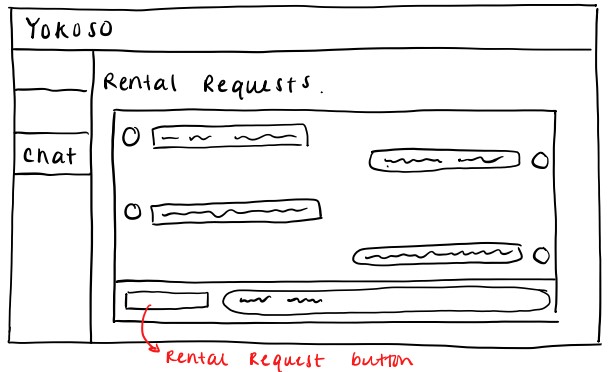 Yokoso
Rental Requests.
Chat
Rental Request button